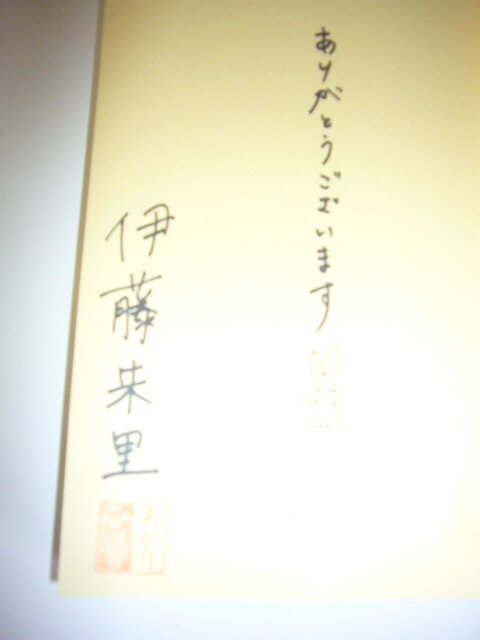 ありがとうございます
伊藤朱里